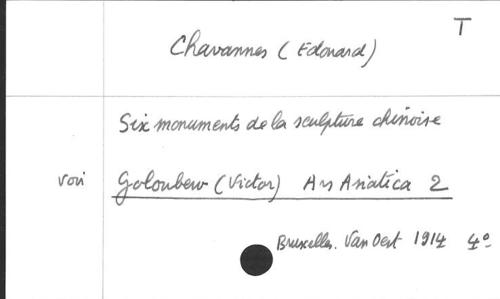 T
Chavannes (Edouard)
Six monuments de la sculpture chinoise
voir Goloubew (Victor) Ars Asiatica 2
Bruxelles. Van Oest 1914 4°